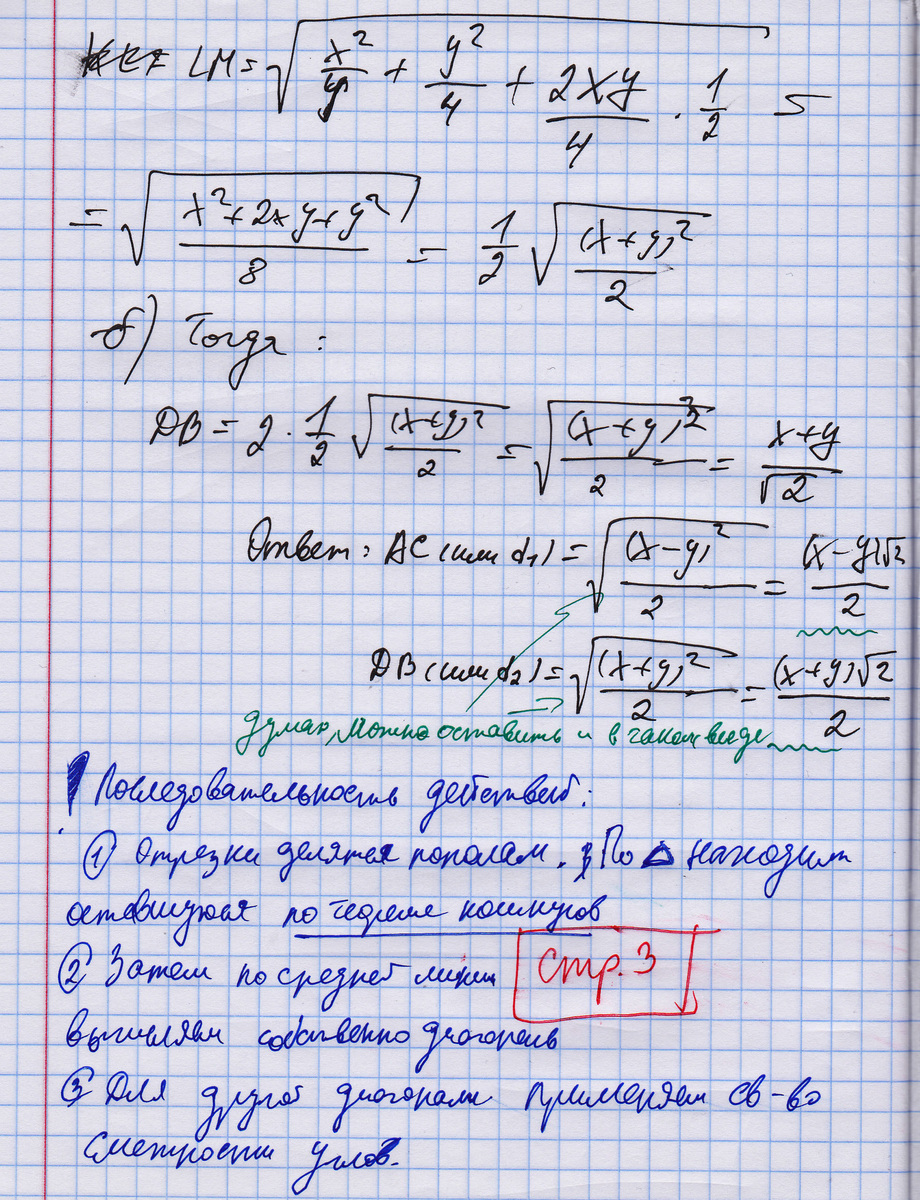 LM = √(x²/4 + y²/4 + 2xy/4 · 1/2) =
= √((x²+2xy+y²)/8) = 1/2 √((x+y)²/2)
б) Тогда :
DB = 2 · 1/2 √((x+y)²/2) = √((x+y)²/2) = (x+y)/√2
Ответ: AC (или d₁) = √((x-y)²/2) = (x-y)√2/2
DB (или d₂) = √((x+y)²/2) = (x+y)√2/2
думаю, можно оставить и в таком виде
Последовательность действий:
① Отрезки делятся пополам. По △ находим
оставшуюся по теореме косинусов
② Затем по средней линии
стр. 3
вычисляем собственно диагональ
③ Для другой диагонали применяем св-во
смежности углов.